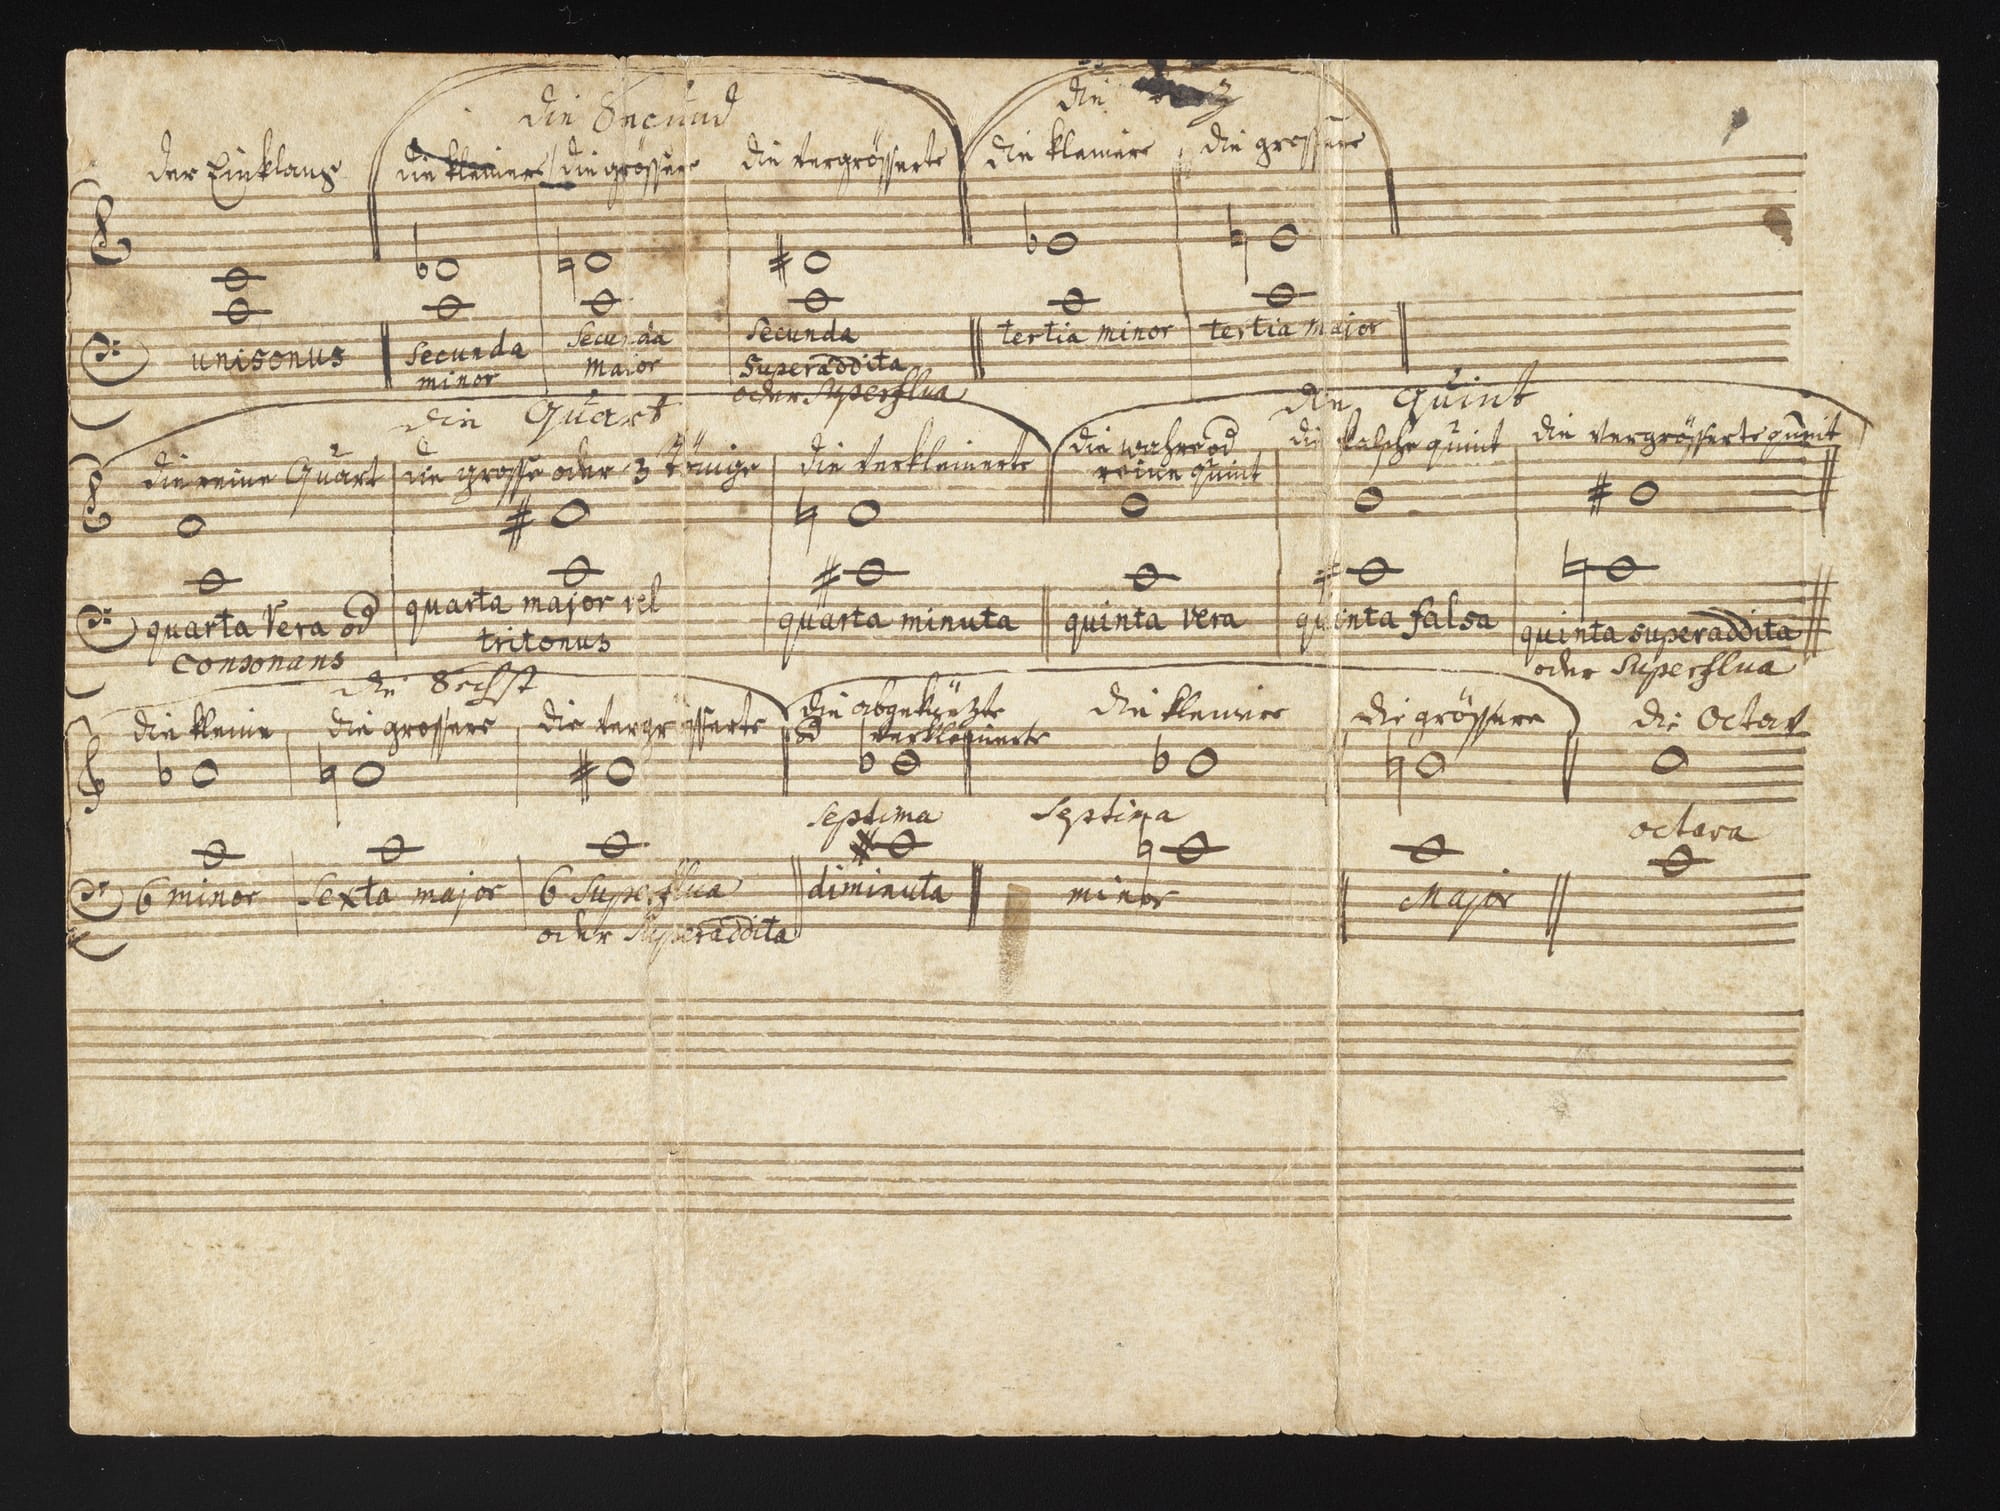 die Secund
die
der Einklang
die kleinere
die grössere
die vergrösserte
die kleinere
die grössere
unisonus
Secunda
minor
Secunda
major
Secunda
Superaddita
oder Superflua
tertia minor
tertia major
die Quart
die Quint
die reine Quart
die grosse oder 3 tönige
die verkleinerte
die wahre od
reine quint
die falsche quint
die vergrösserte quint
quarta vera od
Consonans
quarta major vel
tritonus
quarta minuta
quinta vera
quinta falsa
quinta superaddita
oder Superflua
die Sechst
die kleine
die grossere
die vergrösserte
die abgekürzte
od verkleinerte
die kleinere
die grössere
die Octav
septima
Septima
octava
6 minor
Sexta major
6 Superflua
oder Superaddita
diminuta
minor
Major